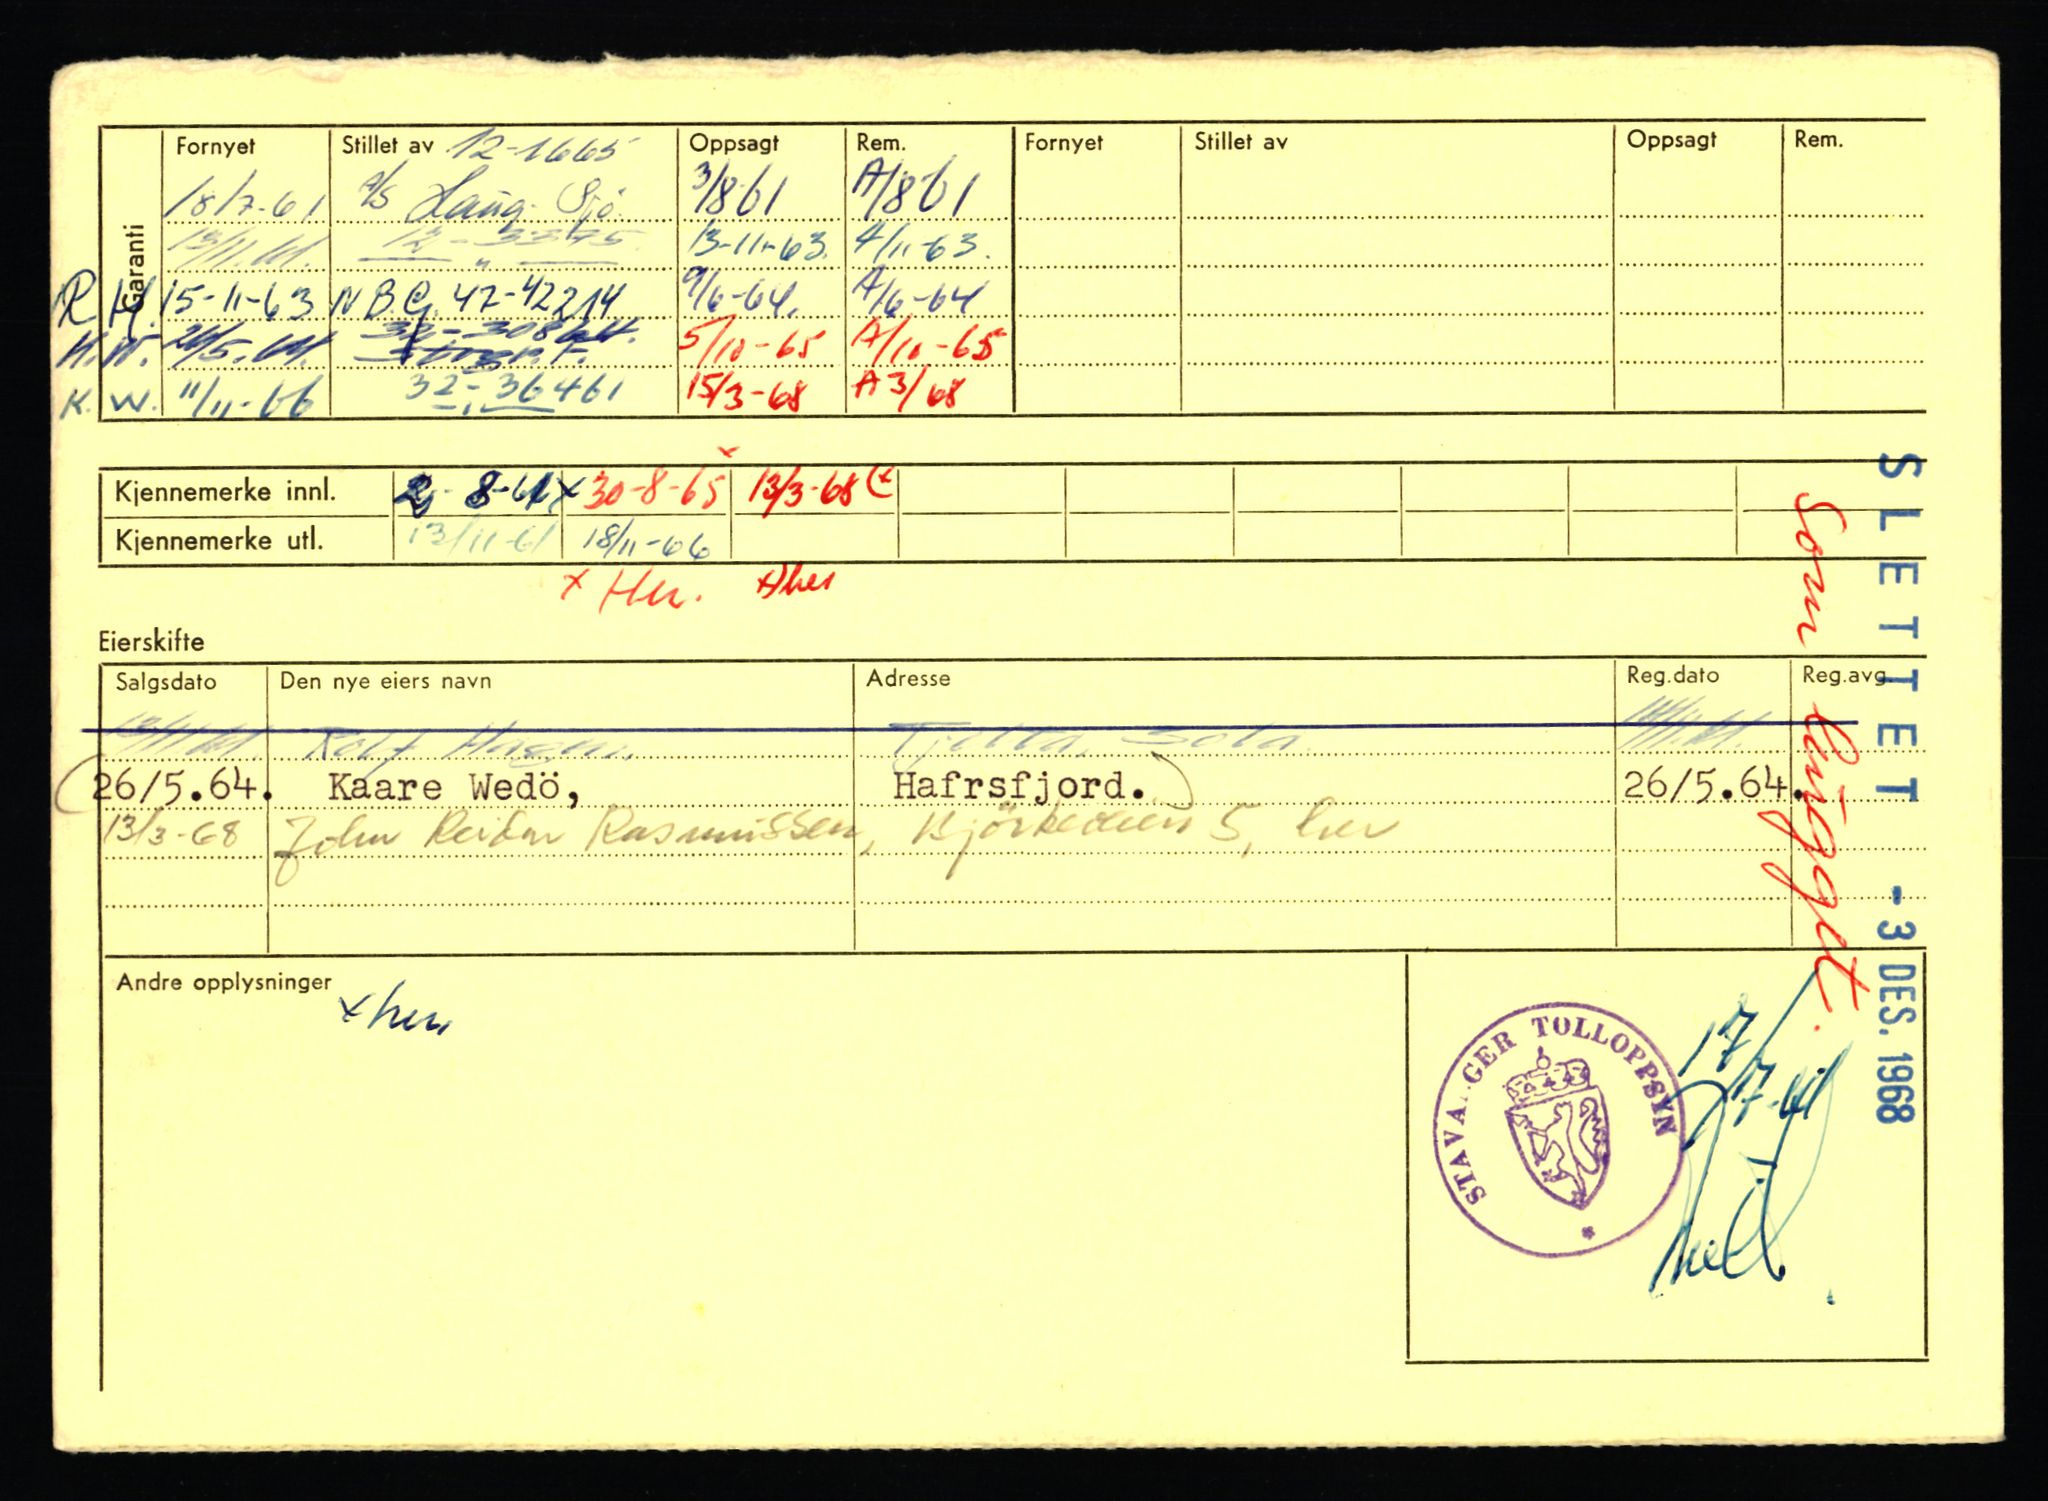 Garanti
Fornyet Stillet av 12-1665 Oppsagt Rem. Fornyet Stillet av Oppsagt Rem.
18/7-61 A/S Haug. Sjö. 3/8 61 A/8 61
13/11.61. 12-3375 13-11-63. A/11-63.
R. H. 15-11-63 N.B.G. 47-42214 9/6-64. A/6-64
K.W. 26/5.64. 5/10-65 A/10-65
K. W. 11/11-66 32-36461 15/3-68 A 3/68
Kjennemerke innl. 2-8-61 x 30-8-65 13/3-68 (x
Kjennemerke utl. 13/11-61 18/11-66
x Her. x) her
Eierskifte
Salgsdato Den nye eiers navn Adresse Reg.dato Reg.avg.
13/11.61. Rolf Hagen. Tjelta, Sola
26/5.64. Kaare Wedö, Hafrsfjord. 26/5.64.
13/3-68 John Reidar Rasmussen, 5, her
Andre opplysninger
x her
STAVANGER TOLLOPPSYN
17/7-61
SLETTET -3 DES. 1968
Som utlögget.